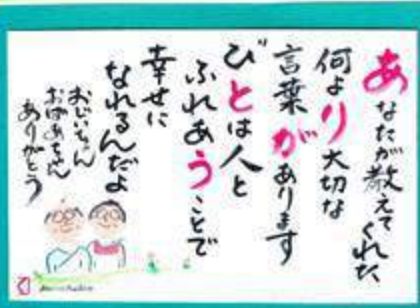 あなたが教えてくれた
何より大切な
言葉があります
ひとは人と
ふれあうことで
幸せに
なれるんだよ
おじいちゃん
おばあちゃん
ありがとう